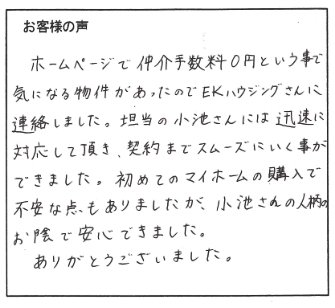 お客様の声
ホームページで仲介手数料0円という事で
気になる物件があったのでEKハウジングさんに
連絡しました。担当の小池さんには迅速に
対応して頂き、契約までスムーズにいく事が
できました。初めてのマイホームの購入で
不安な点もありましたが、小池さんの人柄の
お陰で安心できました。
ありがとうございました。